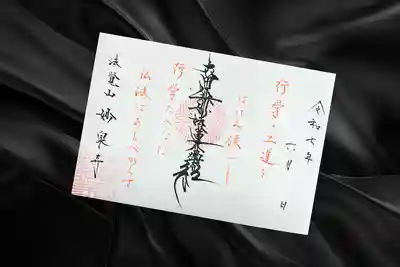 令和七年
六月 日
行学の二道を
はげみ候べし
南無妙法蓮華経
行学たへなば
仏法はあるべからず
法登山 妙泉寺